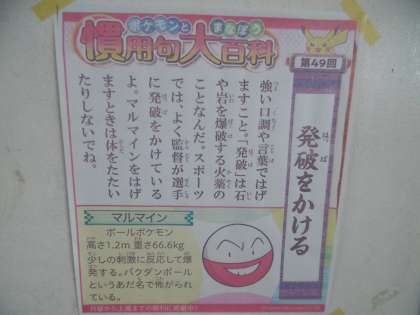 ポケモンとまなぼう
慣用句大百科
第49回
発破をかける
はっぱ
強い口調や言葉ではげ
ますこと。「発破」は石
や岩を爆破する火薬の
ことなんだ。スポーツ
では、よく監督が選手
に発破をかけている
よ。マルマインをはげ
ますときは体をたたい
たりしないでね。
マルマイン
ボールポケモン
高さ1.2m 重さ66.6kg
少しの刺激に反応して爆
発する。バクダンボール
というあだ名で怖がられ
ている。